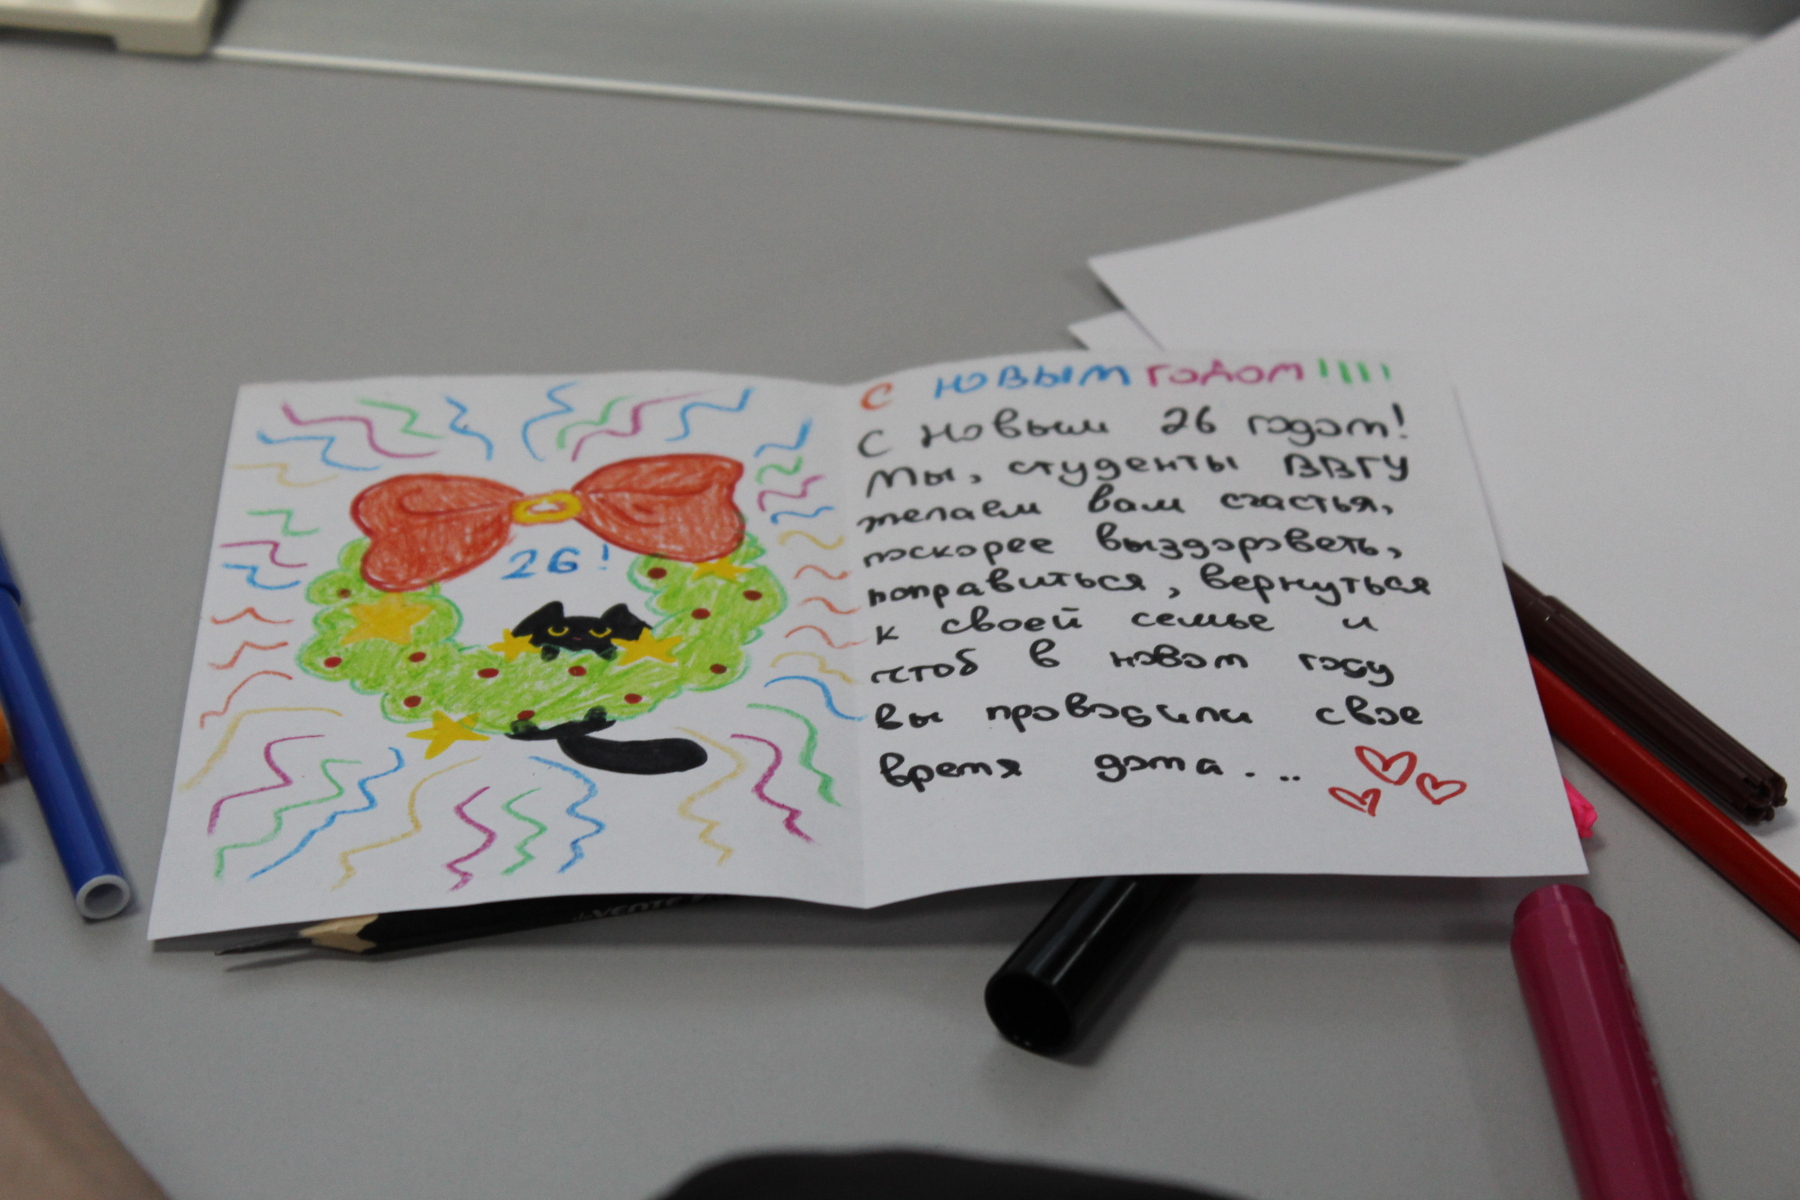 26!
С НОВЫМ ГОДОМ!!!!
С Новым 26 годом!
Мы, студенты ВВГУ
желаем вам счастья,
поскорее выздороветь,
поправиться, вернуться
к своей семье и
чтоб в новом году
вы проводили свое
время дома...